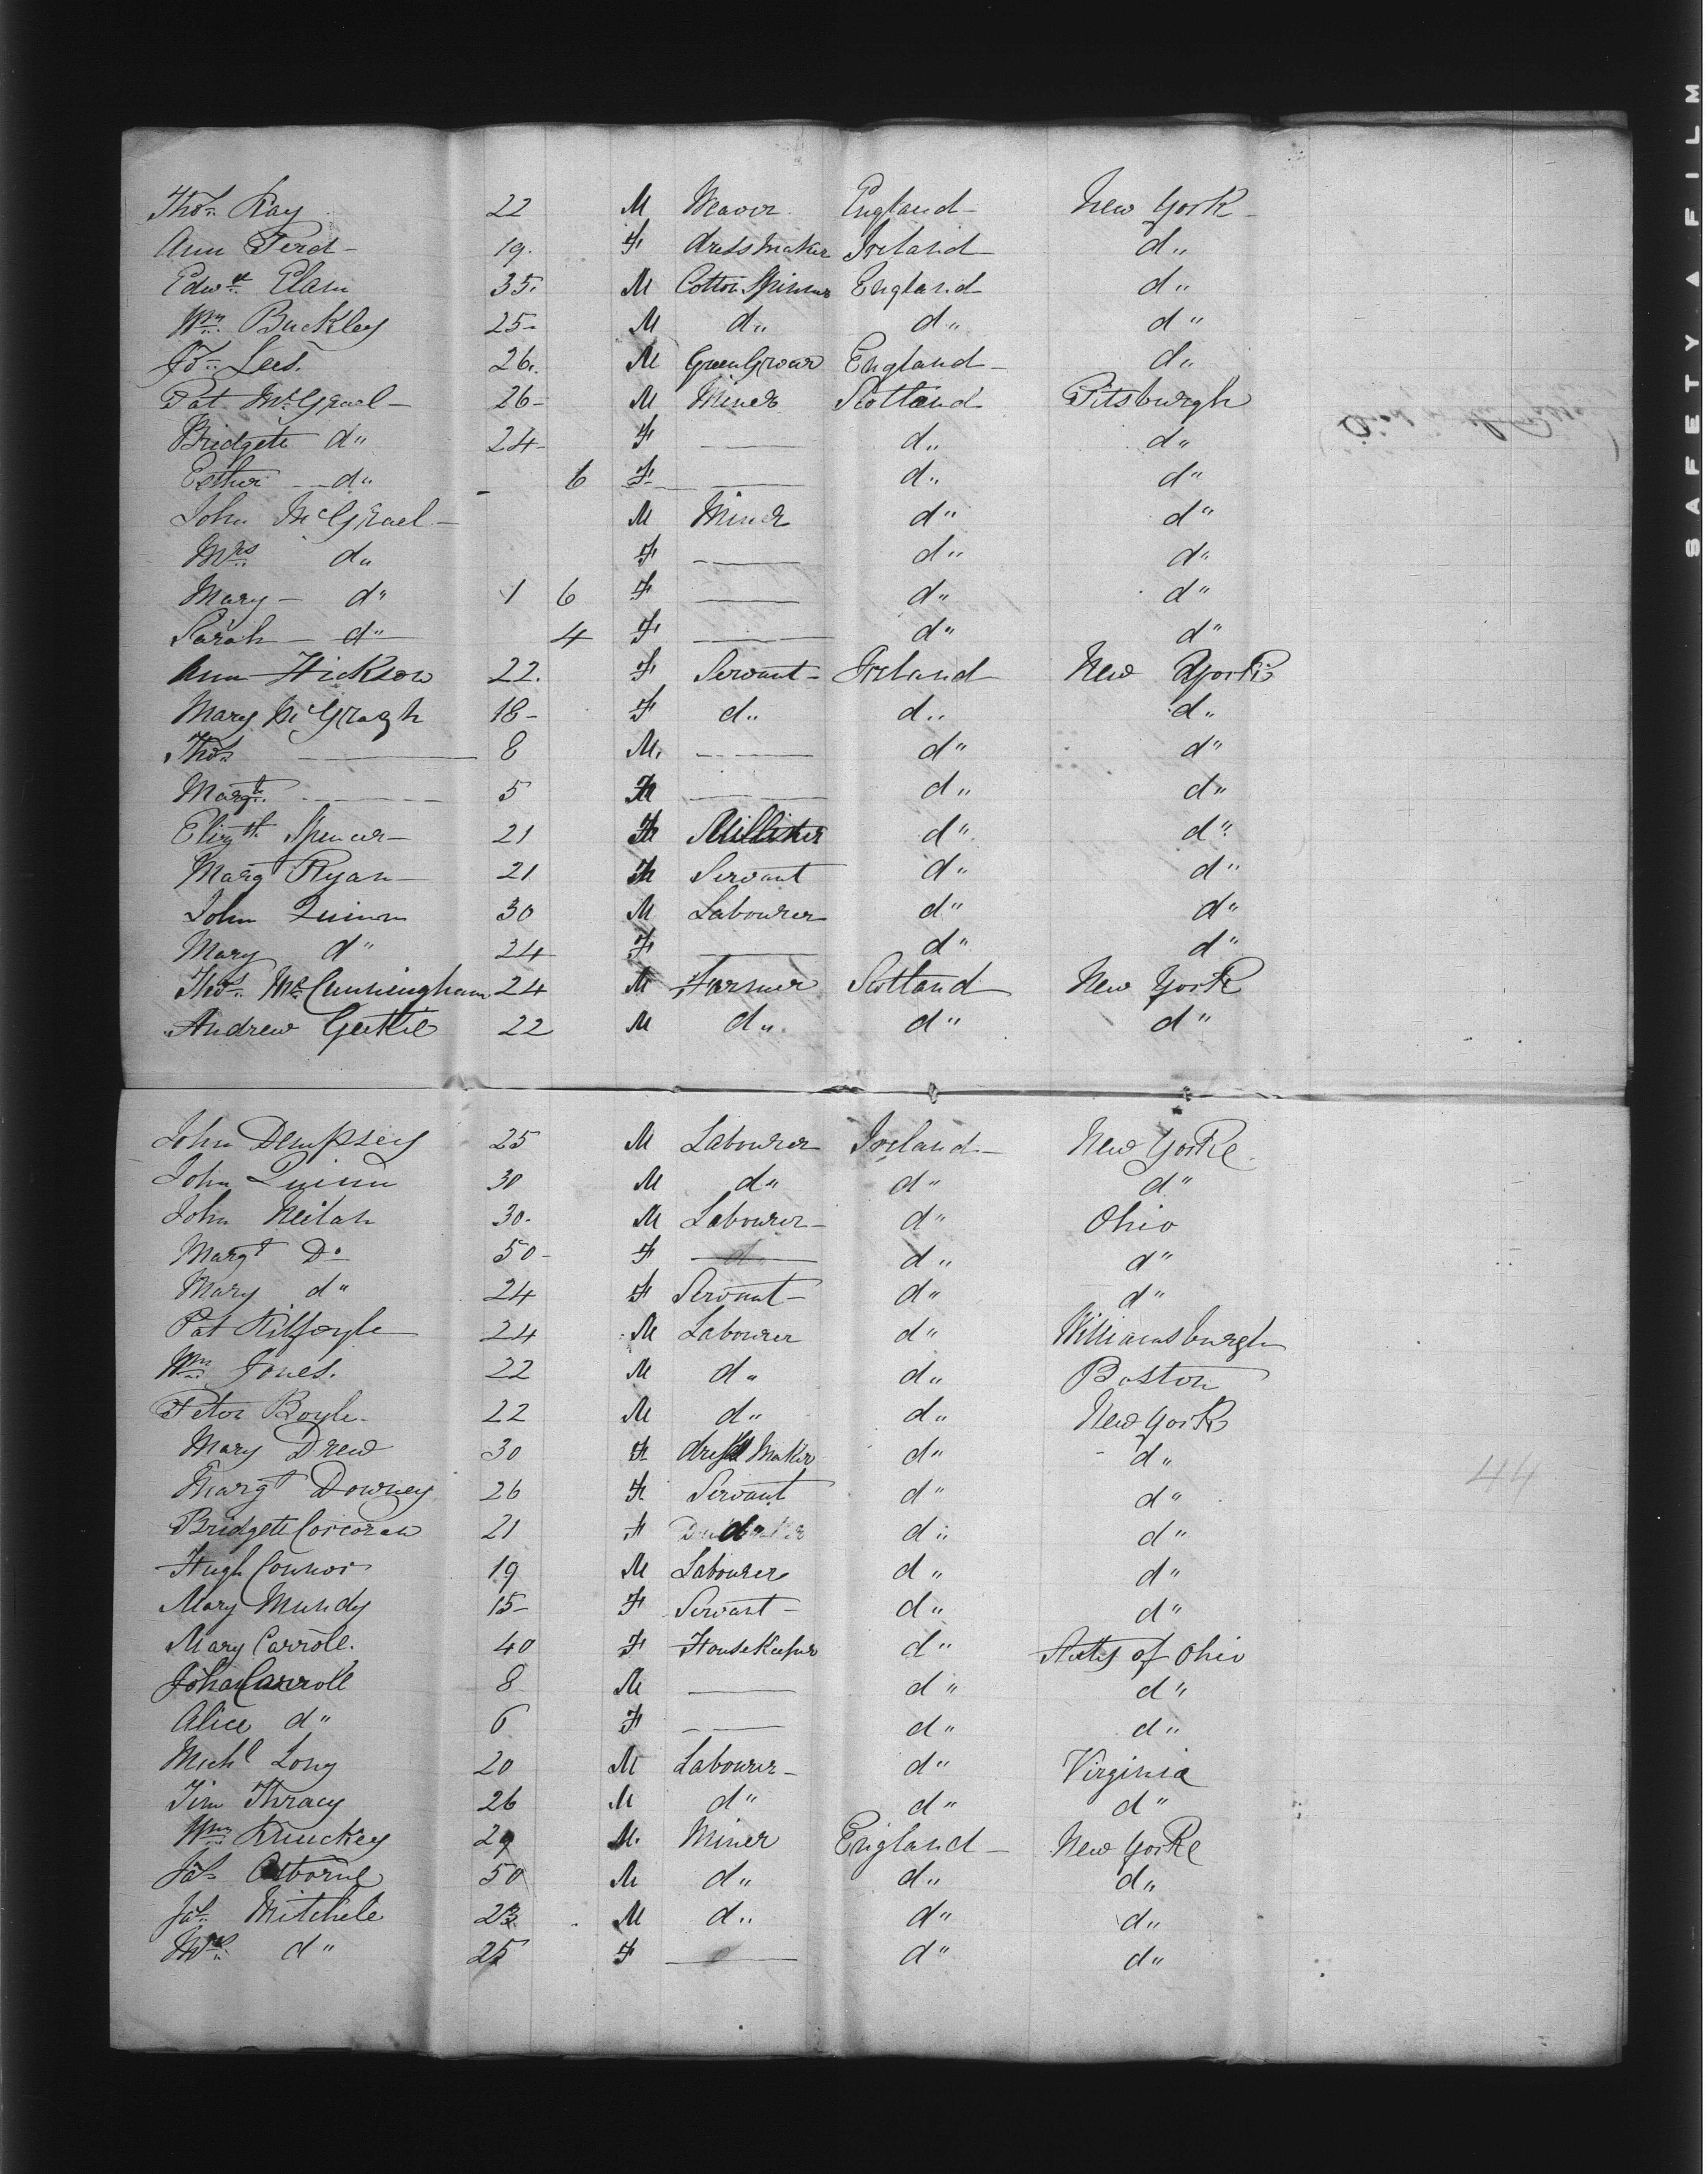 Thos Kay 22 M Weaver England New York
Ann Ferd 19 F dressmaker Ireland d"
Edwd Elam 35 M Cotton Spinner England d"
Wm Buckley 25 M d" d" d"
Lees. 26 M GreenGrocer England d"
Pat McGrael 26 M Miner Scotland Pitsburgh
Bridgett d" 24 F — d" d"
Esther d" 6 F — d" d"
John McGrael M Miner d" d"
Mrs d" F — d" d"
Mary d" 1 6 F — d" d"
Sarah d" 4 F — d" d"
Ann Hickson 22. F Servant Ireland New York
Mary McGragh 18 F d" d" d"
Thos — 8 M — d" d"
Margt — 5 F — d" d"
Elizth Spencer 21 F Milliner d" d"
Margt Ryan 21 F Servant d" d"
John Quinn 30 M Labourer d" d"
Mary d" 24 F — d" d"
Thos McCunningham 24 M Farmer Scotland New York
Andrew Geekie 22 M d" d" d"
John Dempsey 25 M Labourer Ireland New York
John Quinn 30 M d" d" d"
John Neilan 30 M Labourer d" Ohio
Margt Do 50 F — d" d"
Mary d" 24 F Servant d" d"
Pat Kilfoyle 24 M Labourer d" Williamsburgh
Wm Jones. 22 M d" d" Boston
Peter Boyle 22 M d" d" New York
Mary Drew 30 F dress Maker d" d"
Margt Downey 26 F Servant d" d"
Bridgett Corcoran 21 F d" d" d"
Hugh Connor 19 M Labourer d" d"
Mary Mundy 15 F Servant d" d"
Mary Carroll. 40 F HouseKeeper d" States of Ohio
John Carroll 8 M — d" d"
Alice d" 6 F — d" d"
Michl Long 20 M Labourer d" Virginia
Tim Thracy 26 M d" d" d"
Wm Knuckey 29 M. Miner England New York
Jas Osborne 50 M d" d" d"
Jas Mitchele 23 M d" d" d"
Mrs d" 25 F — d" d"
44
SAFETY FILM